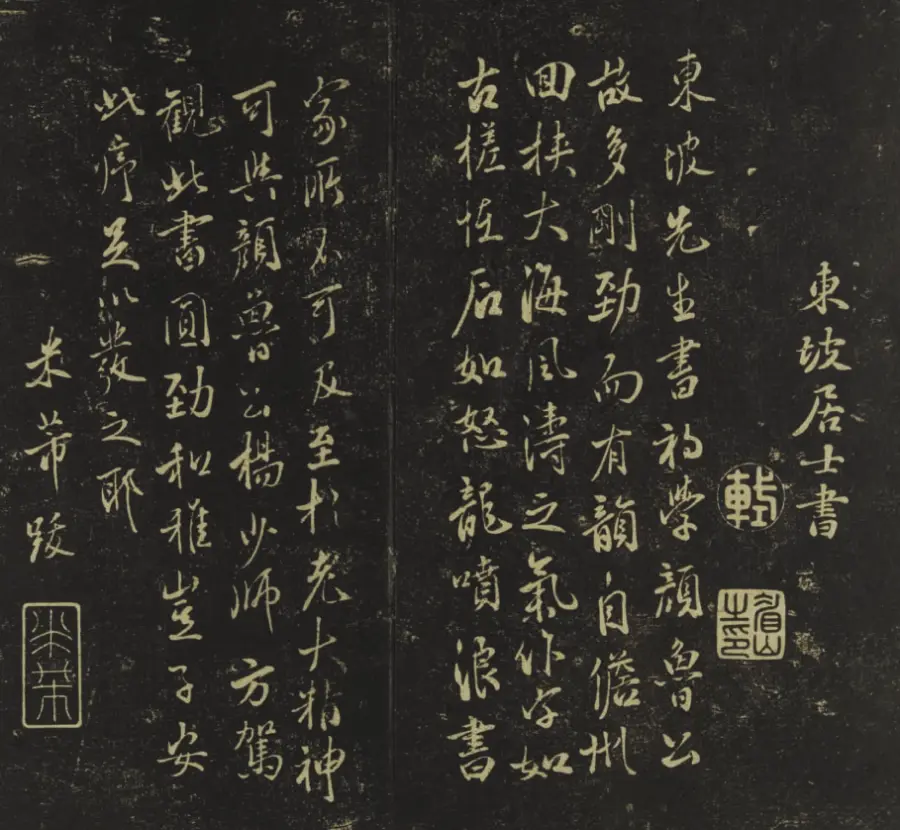 東坡居士書
軾
眉山之印
東坡先生書初學顔魯公
故多剛勁而有韻自儋州
回挾大海風濤之氣作字如
古槎怪石如怒龍噴浪書
家所不可及至於老大精神
可與顔魯公楊少師方駕
觀此書圓勁和雅豈子安
此序足以發之耶
米芾跋
米芾